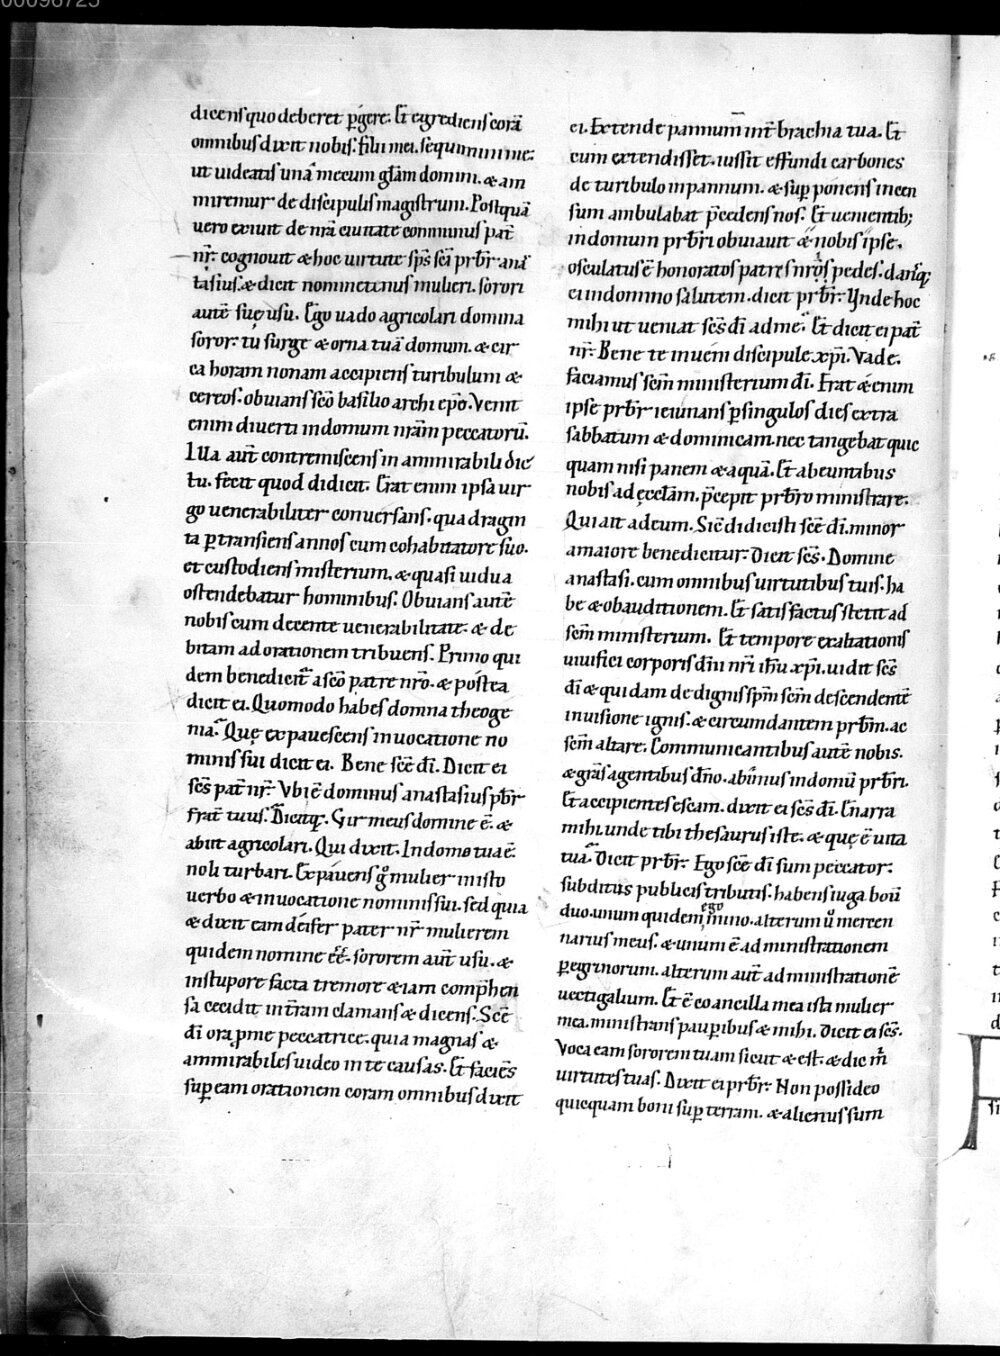 00096725
dicenſ quo deberet ꝑgere. Et egredienſ corā
omnibuſ dixit nobiſ. filii mei. ſequimini me.
ut uideatiſ unā mecum gl̄am domini. & am
miremur de diſcipuliſ magiſtrum. Poſtquā
uero exiuit de nr̄a ciuitate communiſ pat̄
nr̄. cognouit & hoc uirtute ſp̄ſ ſc̄i pr̄br anaſ
taſiuſ. & dicit nominetenuſ mulieri. ſorori
autē ſuę uſu. Ego uado agricolari domina
ſoror. tu ſurge & orna tuā domum. & cir
ca horam nonam accipienſ turibulum &
cereoſ. obuianſ ſc̄o baſilio archi ep̄o. Venit
enim diuerti in domum nr̄am peccatorū.
Illa aut̄ contremiſcenſ in ammirabili dic
tu. fecit quod didicit. Erat enim ipſa uir
go uenerabiliter conuerſanſ. quadragin
ta ꝑtranſienſ annoſ cum cohabitatore ſuo.
et cuſtodienſ miſterium. & quaſi uidua
oſtendebatur hominibuſ. Obuianſ autē
nobiſ cum decente uenerabilitate. & de
bitam ad orationem tribuenſ. Primo qui
dem benedicit̄ a ſc̄o patre nr̄o. & poſtea
dicit ei. Quomodo habeſ domna theoge
nia. Quę expaueſcenſ in uocatione no
miniſ ſui dicit ei. Bene ſc̄e dī. Dicit ei
ſc̄ſ pat̄ nr̄. Vbi ē dominuſ anaſtaſiuſ pb̄r
frat̄ tuuſ. Dicitq;. Vir meuſ domine ē. &
abiit agricolari. Qui dixit. In domo tua ē.
noli turbari. Expauenſ g̊ mulier in iſto
uerbo & in uocatione nominiſ ſui. ſed quia
& dixit eam deifer pater nr̄ mulierem
quidem nomine eē. ſororem aut̄ uſu. &
in ſtupore facta tremore & iam comp̄hen
ſa cecidit in t̄ram clamanſ & dicenſ. Sc̄e
dī ora ꝑ me peccatrice. quia magnaſ &
ammirabileſ uideo in te cauſaſ. Et facienſ
ſuꝑ eam orationem coram omnibuſ dixit
ei. Extende pannum int̄ brachia tua. Et
cum extendiſſet. iuſſit effundi carboneſ
de turibulo in pannum. & ſuꝑ ponenſ incen
ſum ambulabat p̄cedenſ noſ. Et uenientib;
in domum pr̄bri obuiauit & nobiſ ipſe.
oſculatuſ ē honoratoſ patriſ nr̄i pedeſ. danſq;
ei in domino ſalutem. dicit pr̄br. Vnde hoc
mihi ut ueniat ſc̄ſ dī ad me. Et dicit ei pat̄
nr̄. Bene te inueni diſcipule xp̄i. Vade.
faciamuſ ſc̄m miniſterium dī. Erat & enim
ipſe pr̄br ieiunanſ ꝑ ſinguloſ dieſ extra
ſabbatum & dominicam. nec tangebat quic
quam niſi panem & aquā. Et abeuntabuſ
nobiſ ad eccl̄am. p̄cepit pr̄bro miniſtrare.
Qui ait ad eum. Sic didiciſti ſc̄e dī. minor
a maiore benedicitur. Dicit ſc̄ſ. Domine
anaſtaſi. cum omnibuſ uirtutibuſ tuiſ. ha
be & obauditionem. Et ſatiſfactuſ ſtetit ad
ſc̄m miniſterium. Et tempore exaltationiſ
uiuifici corporiſ dn̄i nr̄i ih̄u xp̄i. uidit ſc̄ſ
dī & quidam de digniſ ſp̄m ſc̄m deſcendentē
in uiſione igniſ. & circumdantem pr̄bm. ac
ſc̄m altare. Communicantibuſ autē nobiſ.
& gr̄aſ agentibuſ dn̄o. abiimuſ in domū pr̄bri.
Et accipienteſ eſcam. dixit ei ſc̄ſ dī. Enarra
mihi. unde tibi theſauruſ iſte. & quę ē uita
tua. Dicit pr̄br. Ego ſc̄e dī ſum peccator.
ſubdituſ publiciſ tributiſ. habenſ iuga boū
duo. unum quidem ego mino. alterum ů mercen
nariuſ meuſ. & unum ē ad miniſtrationem
ꝑegrinorum. alterum aut̄ ad miniſtrationē
uectigalium. Et ē co ancilla mea iſta mulier
mea. miniſtranſ pauꝑibuſ & mihi. Dicit ei ſc̄ſ.
Voca eam ſororem tuam ſicut & eſt. & dic m̊
uirtuteſ tuaſ. Dixit ei pr̄br. Non poſſideo
quicquam boni ſuꝑ terram. & alienuſ ſum